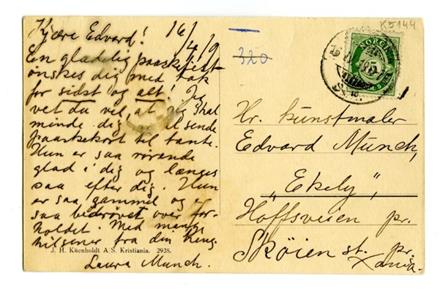 Kjære Edvard! 16/4/9
En gladelig paaskefest
ønskes dig med tak
for sidst og alt! Jo
vet du vel, at jeg skal
minde dig at sende
paaskekort til tante.
Hun er saa rørende
glad i dig og længes
saa efter dig. Hun
er saa gammel og
saa bedrøvet over for-
holdet. Med mange
hilsener fra din heng.
Laura Munch.
J. H. Küenholdt A. S. Kristiania. 2938.
320
K5144
Hr. kunstmaler
Edvard Munch,
"Ekely"
Hoffsveien pr.
Skøien st. pr.
Xania.